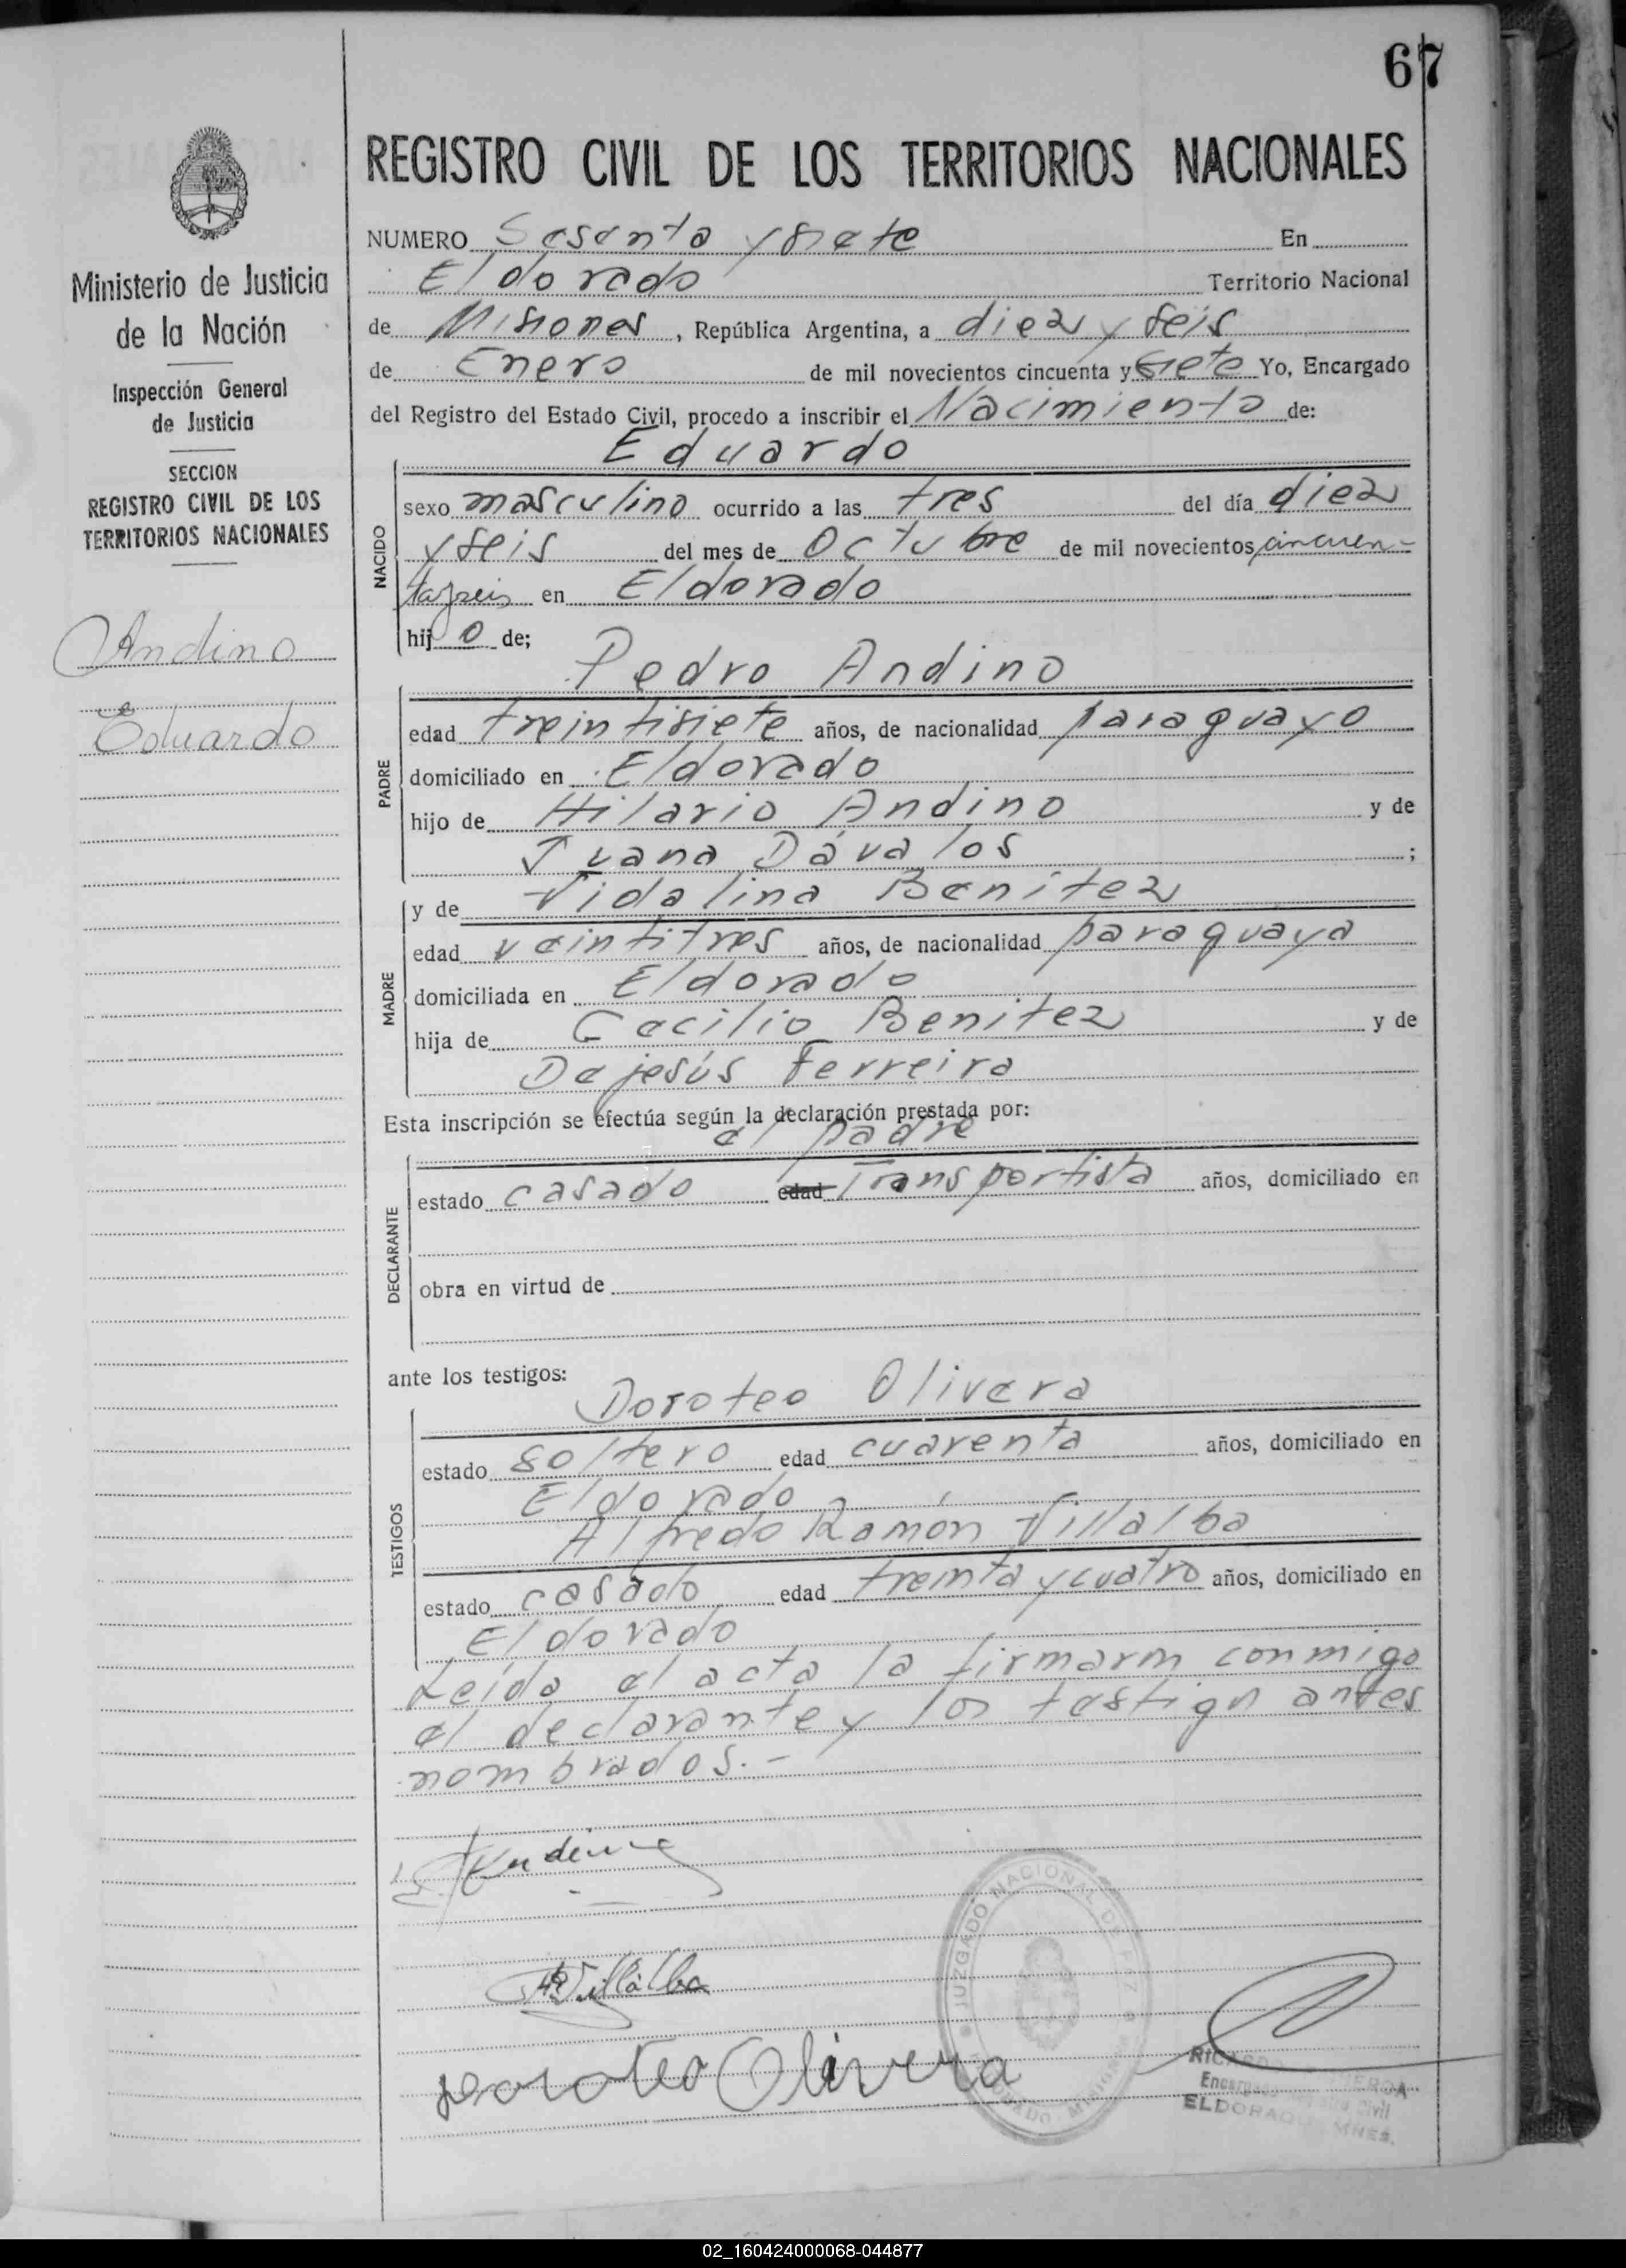 67
REGISTRO CIVIL DE LOS TERRITORIOS NACIONALES
Ministerio de Justicia
de la Nación
Inspección General
de Justicia
SECCION
REGISTRO CIVIL DE LOS
TERRITORIOS NACIONALES
Andino
Eduardo
NUMERO Sesenta y siete En
Eldorado Territorio Nacional
de Misiones, República Argentina, a diez y seis
de Enero de mil novecientos cincuenta y siete Yo, Encargado
del Registro del Estado Civil, procedo a inscribir el Nacimiento de:
Eduardo
NACIDO
sexo masculino ocurrido a las tres del día diez
y seis del mes de Octubre de mil novecientos cincuen-
tayseis en Eldorado
hijo de;
Pedro Andino
PADRE
edad treintisiete años, de nacionalidad paraguayo
domiciliado en Eldorado
hijo de Hilario Andino y de
Juana Dávalos ;
y de Vidalina Benitez
MADRE
edad veintitres años, de nacionalidad paraguaya
domiciliada en Eldorado
hija de Cecilio Benitez y de
Dejesús Ferreira
Esta inscripción se efectúa según la declaración prestada por:
el padre
DECLARANTE
estado casado edad Transportista años, domiciliado en
obra en virtud de
ante los testigos:
Doroteo Olivera
TESTIGOS
estado soltero edad cuarenta años, domiciliado en
Eldorado
Alfredo Ramón Villalba
estado casado edad treinta y cuatro años, domiciliado en
Eldorado
Leída el acta la firmaron conmigo
el declarante y los testigos antes
nombrados.-
Andino
Villalba
Doroteo Olivera
JUZGADO NACIONAL DE PAZ
ELDORADO MISIONES
Encargado Registro Civil
ELDORADO MNES.
02_160424000068-044877